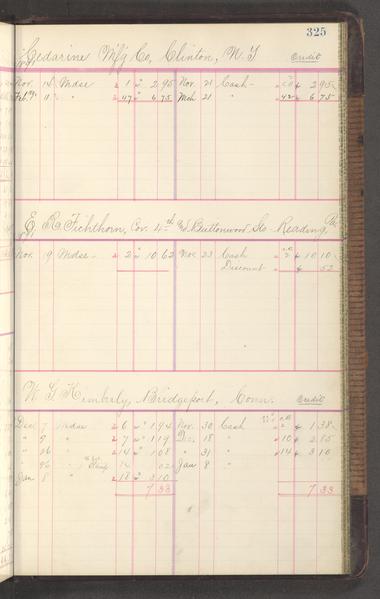 325
Cedarine Mfg Co, Clinton, N.Y Credit
Nov. 14 Mdse 1 2 95 Nov. 21 Cash 2 95
Feb. 11 " 47 6 75 Mch 21 " 42 6 75
E. R. Fichthorn, Cor. 4th & Buttonwood Sts Reading, Pa
Nov. 19 Mdse 2 10 62 Nov 23 Cash 2 10 10
Discount 52
W. G. Kimberly, Bridgeport, Conn. Credit
Dec 7 Mdse 6 1 94 Nov. 30 Cash 2 1 38
" 9 " 7 1 19 Dec. 18 " 10 2 15
" 26 " 14 1 08 " 31 " 14 3 10
" 26 " 14 02 Jan 8 "
Jan 8 " 18 3 10
7 33 7 33